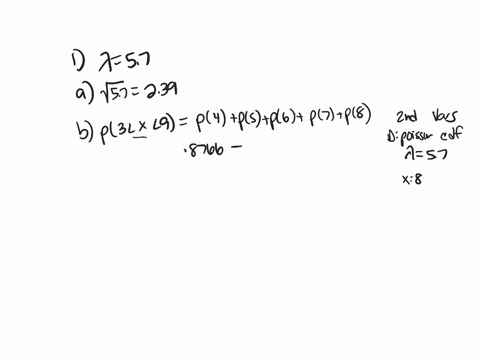 1) λ=5.7
a) √5.7 = 2.39
b) p(3< x <9) = p(4) + p(5) + p(6) + p(7) + p(8)
.8766 −
2nd Vars
D: poisson cdf
λ=57
x:8